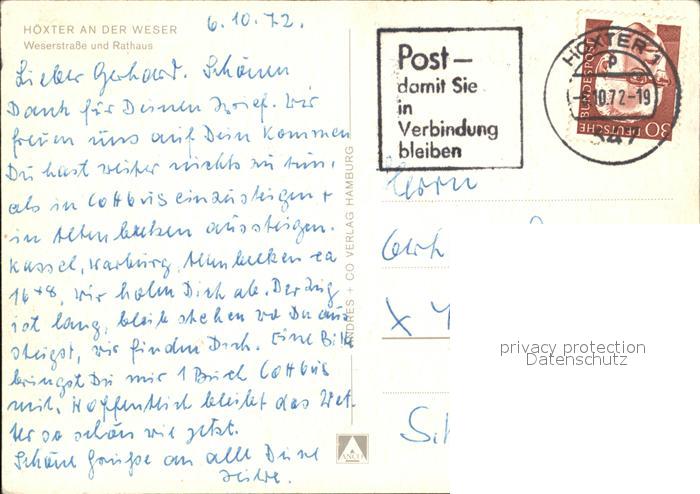 HÖXTER AN DER WESER
Weserstraße und Rathaus
6.10.72.
Lieber Gerhard. Schönen
Dank für Deinen Brief. Wir
freuen uns auf Dein Kommen
Du hast weiter nichts zu tun,
als in Cottbus einzusteigen +
in Altenbeken aussteigen.
Kassel, Warburg, Altenbeken ca
16⁴⁸, wir holen Dich ab. Der Zug
ist lang, bleib stehen wo Du aus
steigst, wir finden Dich. Eine Bitte
bringst Du mir 1 Buch Cottbus
mit. Hoffentlich bleibt das Wet-
ter so schön wie jetzt.
Schöne Grüße an alle Deine
ANDRES + CO VERLAG HAMBURG
ANCO
Post–
damit Sie
in
Verbindung
bleiben
HÖXTER 1
10.72-19
347
DEUTSCHE
BUNDESPOST
30
Herrn
Gerh
X 4
privacy protection
Datenschutz